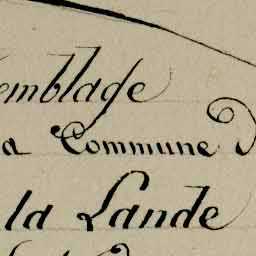 emblage
a Commune D
la Lande